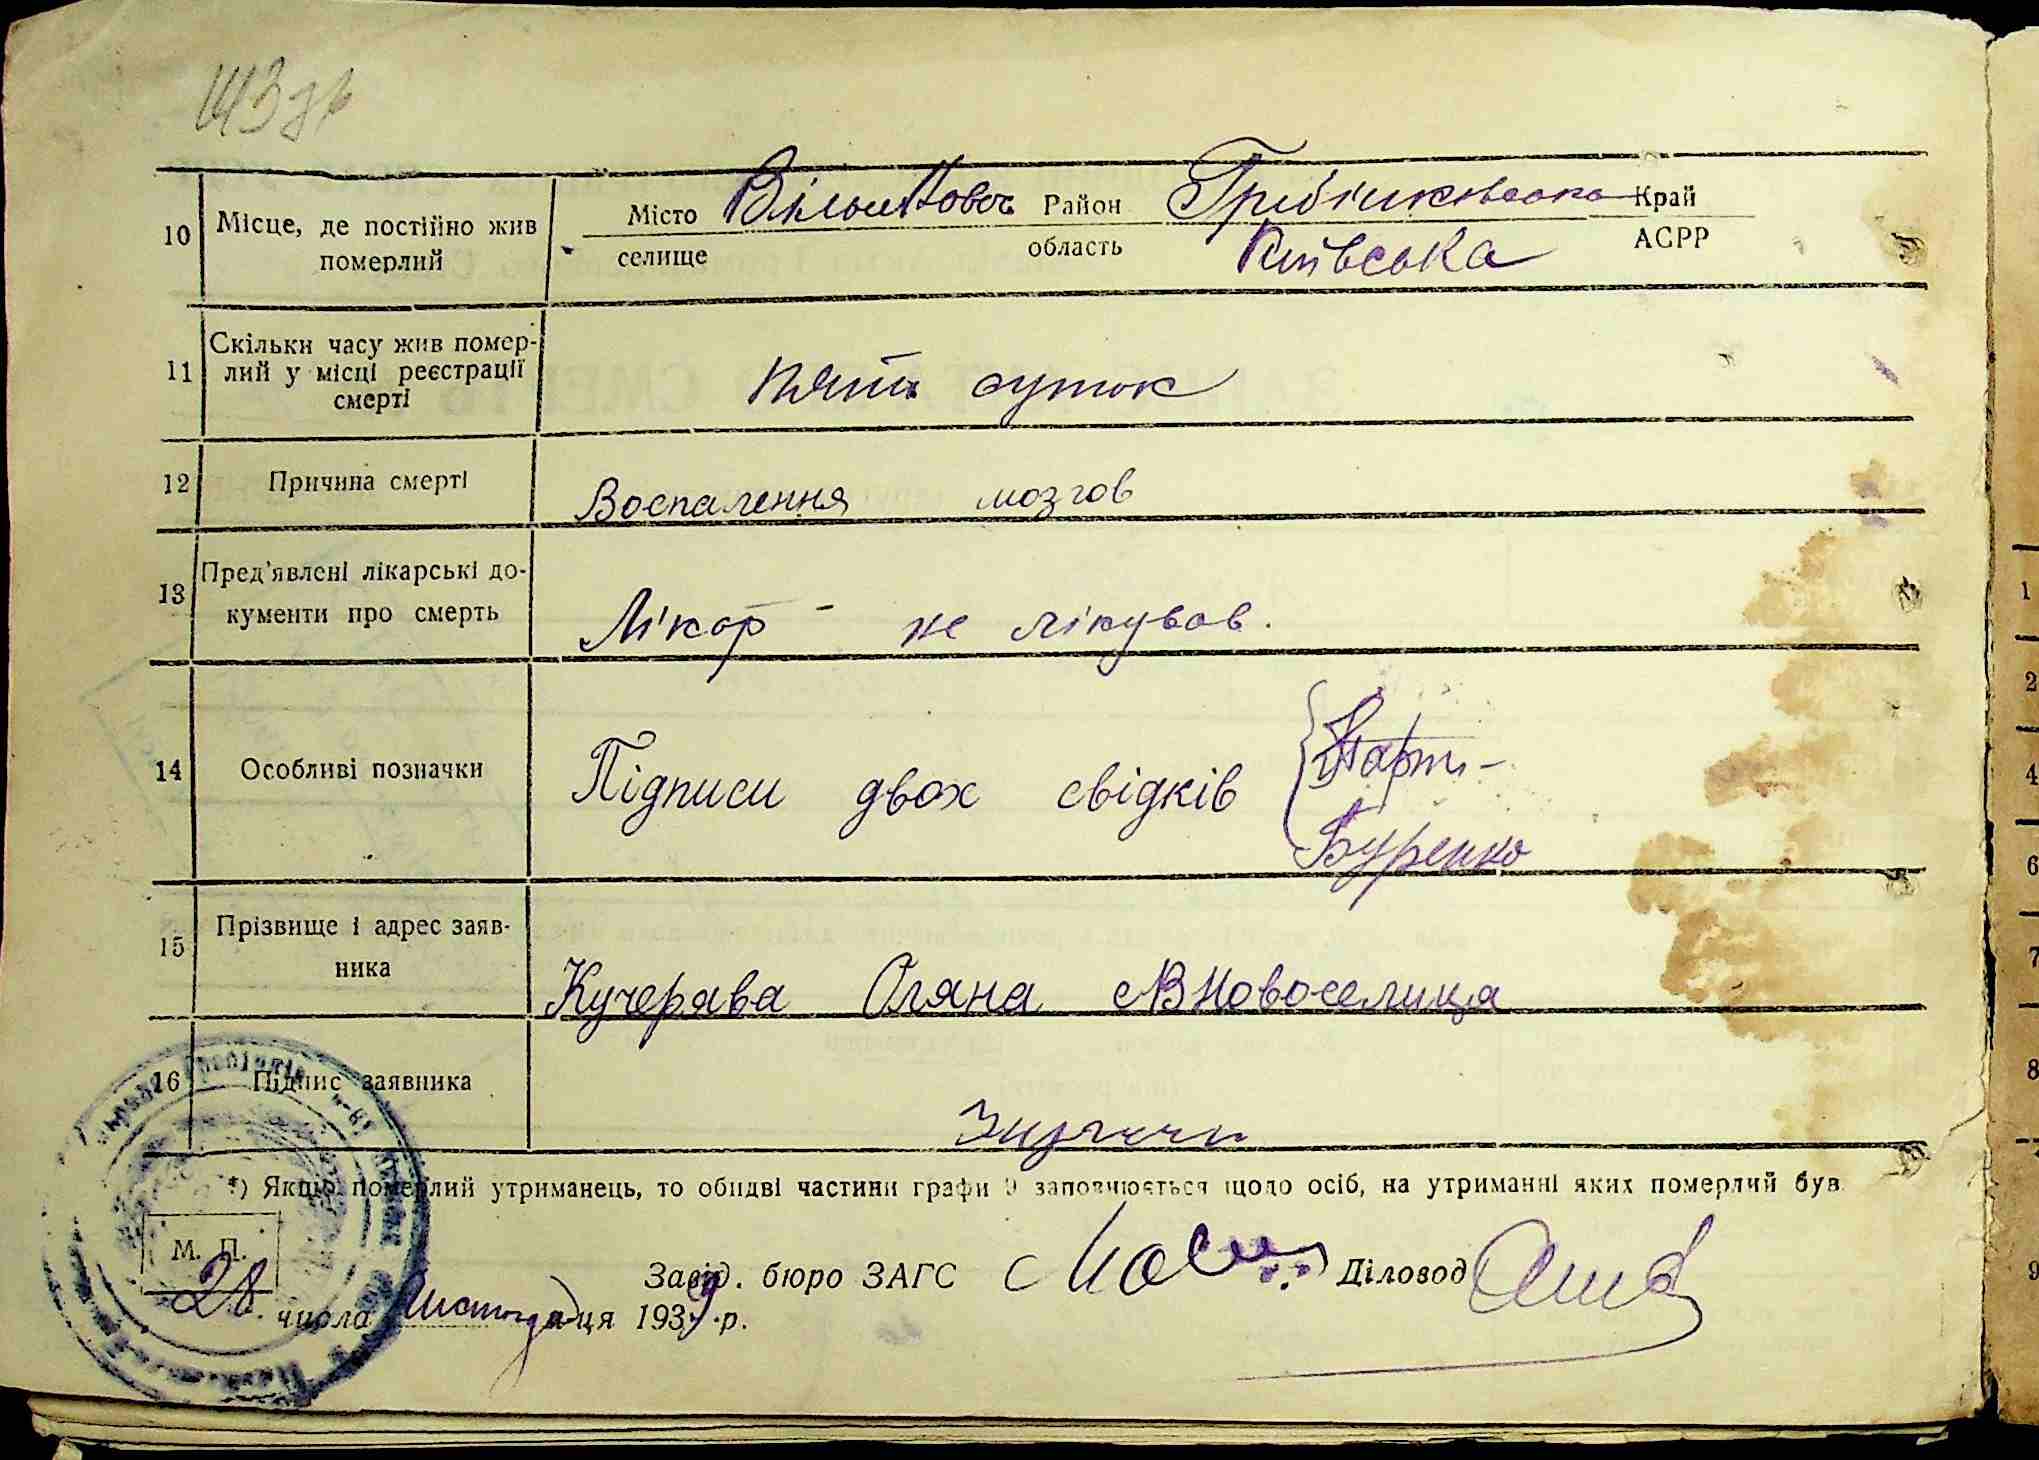 10 Місце, де постійно жив
померлий
Місто Район Край
селище область Київська АСРР
11 Скільки часу жив помер-
лий у місці реєстрації
смерті
пять суток
12 Причина смерті
Воспалення мозгов
13 Пред'явлені лікарські до-
кументи про смерть
Лікар - не лікував.
14 Особливі позначки
Підписи двох свідків
Буренко
15 Прізвище і адрес заяв-
ника
Кучерява Оляна с В Новоселица
16 Підпис заявника
*) Якщо померлий утриманець, то обидві частини графи 9 заповнюється щодо осіб, на утриманні яких померлий був.
М. П.
Завід. бюро ЗАГС Діловод
28 числа Листопадця 1939 р.